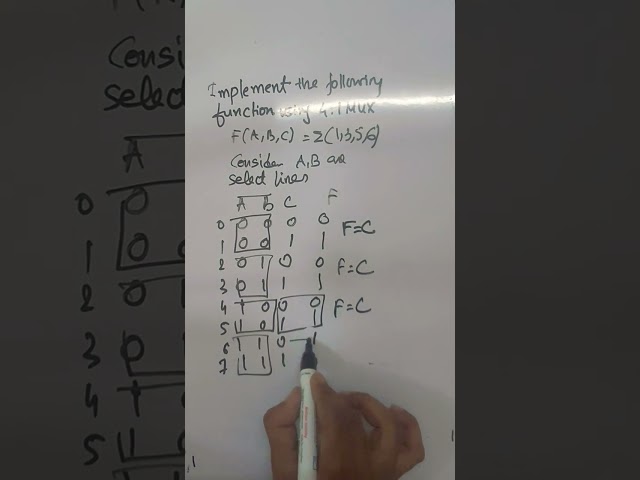 Implement the following
function using 4:1 MUX
F(A,B,C) = Σ(1,3,5,6)
Consider A,B are
select lines
A B C F
0 0 0 0 0
1 0 0 1 1 F=C
2 0 1 0 0
3 0 1 1 1 F=C
4 1 0 0 0
5 1 0 1 1 F=C
6 1 1 0 1
7 1 1 1